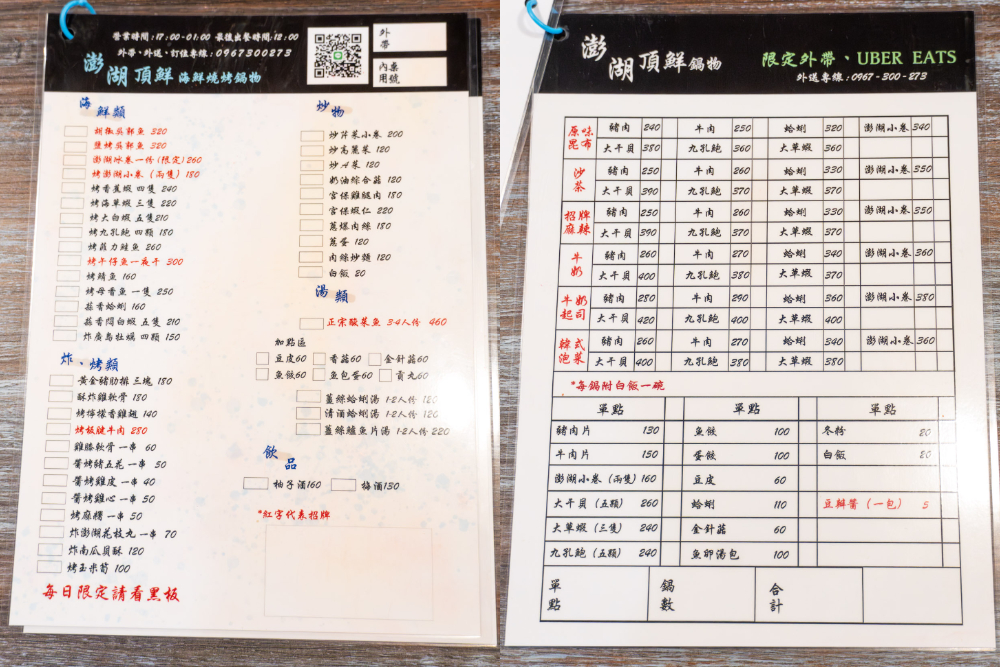 營業時間:17:00-01:00 最後出餐時間:12:00
外帶、外送、訂位專線:0967300273
澎湖頂鮮 海鮮燒烤鍋物
外帶
內桌用號
海鮮類
胡椒吳郭魚 320
鹽烤吳郭魚 320
澎湖冰卷一份(限定)260
烤澎湖小卷(兩隻) 180
烤香蕉蝦 四隻 240
烤海草蝦 三隻 220
烤大白蝦 五隻210
烤九孔鮑 四顆 180
烤菲力鮭魚 260
烤午仔魚一夜干 300
烤鯖魚 160
烤母香魚 一隻 250
蒜香蛤蜊 160
蒜香悶白蝦 五隻 210
炸廣島牡蠣 四顆 150
炸、烤類
黃金豬肋排 三塊 180
酥炸雞軟骨 180
烤檸檬香雞翅 140
烤板腱牛肉 280
雞膝軟骨 一串 60
醬烤豬五花 一串 50
醬烤雞皮 一串 40
醬烤雞心 一串 50
烤麻糬 一串 50
炸澎湖花枝丸 一串 70
炸南瓜貝酥 120
烤玉米筍 100
每日限定請看黑板
炒物
炒芹菜小卷 200
炒高麗菜 120
炒A菜 120
奶油綜合菇 120
宮保雞腿肉 180
宮保蝦仁 220
蔥爆肉絲 180
蔥蛋 120
肉絲炒麵 120
白飯 20
湯類
正宗酸菜魚 3-4人份 460
加點區
豆皮60 香菇60 金針菇60
魚餃60 魚包蛋60 貢丸60
薑絲蛤蜊湯 1-2人份 120
清酒蛤蜊湯 1-2人份 120
薑絲鱸魚片湯 1-2人份 220
飲品
柚子酒160 梅酒130
*紅字代表招牌
澎湖頂鮮鍋物
限定外帶、UBER EATS
外送專線:0967-300-273
原味昆布 豬肉 240 牛肉 250 蛤蜊 320 澎湖小卷 340
大干貝 380 九孔鮑 360 大草蝦 360
沙茶 豬肉 250 牛肉 260 蛤蜊 330 澎湖小卷 350
大干貝 390 九孔鮑 370 大草蝦 370
招牌麻辣 豬肉 250 牛肉 260 蛤蜊 330 澎湖小卷 350
大干貝 390 九孔鮑 370 大草蝦 370
牛奶 豬肉 260 牛肉 270 蛤蜊 340 澎湖小卷 360
大干貝 400 九孔鮑 380 大草蝦 370
牛奶起司 豬肉 280 牛肉 290 蛤蜊 360 澎湖小卷 380
大干貝 420 九孔鮑 400 大草蝦 400
韓式泡菜 豬肉 260 牛肉 270 蛤蜊 340 澎湖小卷 360
大干貝 400 九孔鮑 380 大草蝦 380
*每鍋附白飯一碗
單點 單點 單點
豬肉片 130 魚餃 100 冬粉 20
牛肉片 150 蛋餃 100 白飯 20
澎湖小卷(兩隻) 160 豆皮 60
大干貝(五顆) 260 蛤蜊 110 豆瓣醬(一包) 5
大草蝦(三隻) 240 金針菇 60
九孔鮑(五顆) 240 魚卵湯包 100
單點 鍋數 合計